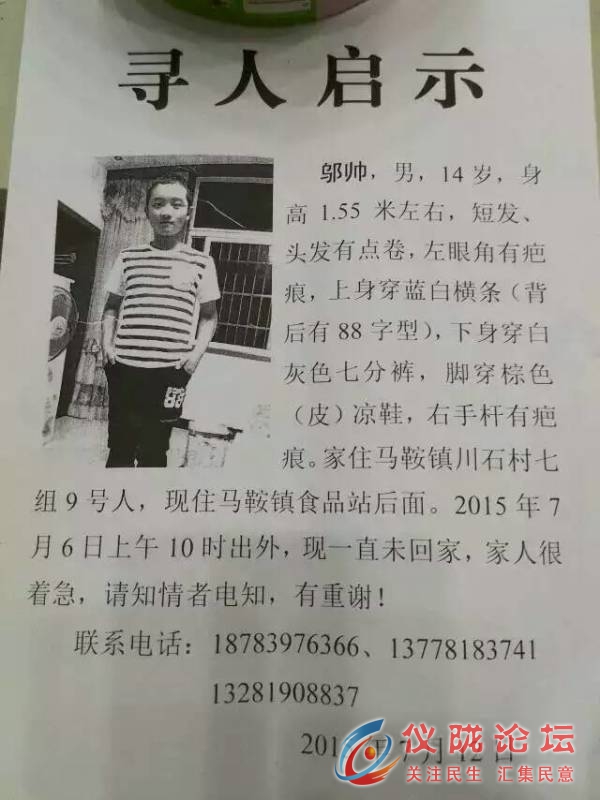 寻人启示
邬帅，男，14岁，身
高1.55 米左右，短发、
头发有点卷，左眼角有疤
痕，上身穿蓝白横条（背
后有88字型），下身穿白
灰色七分裤，脚穿棕色
（皮）凉鞋，右手杆有疤
痕。家住马鞍镇川石村七
组9号人，现住马鞍镇食品站后面。2015年7
月6日上午10时出外，现一直未回家，家人很
着急，请知情者电知，有重谢！
联系电话：18783976366、13778183741
13281908837
201 年7月12日
仪陇论坛
关注民生 汇集民意
88